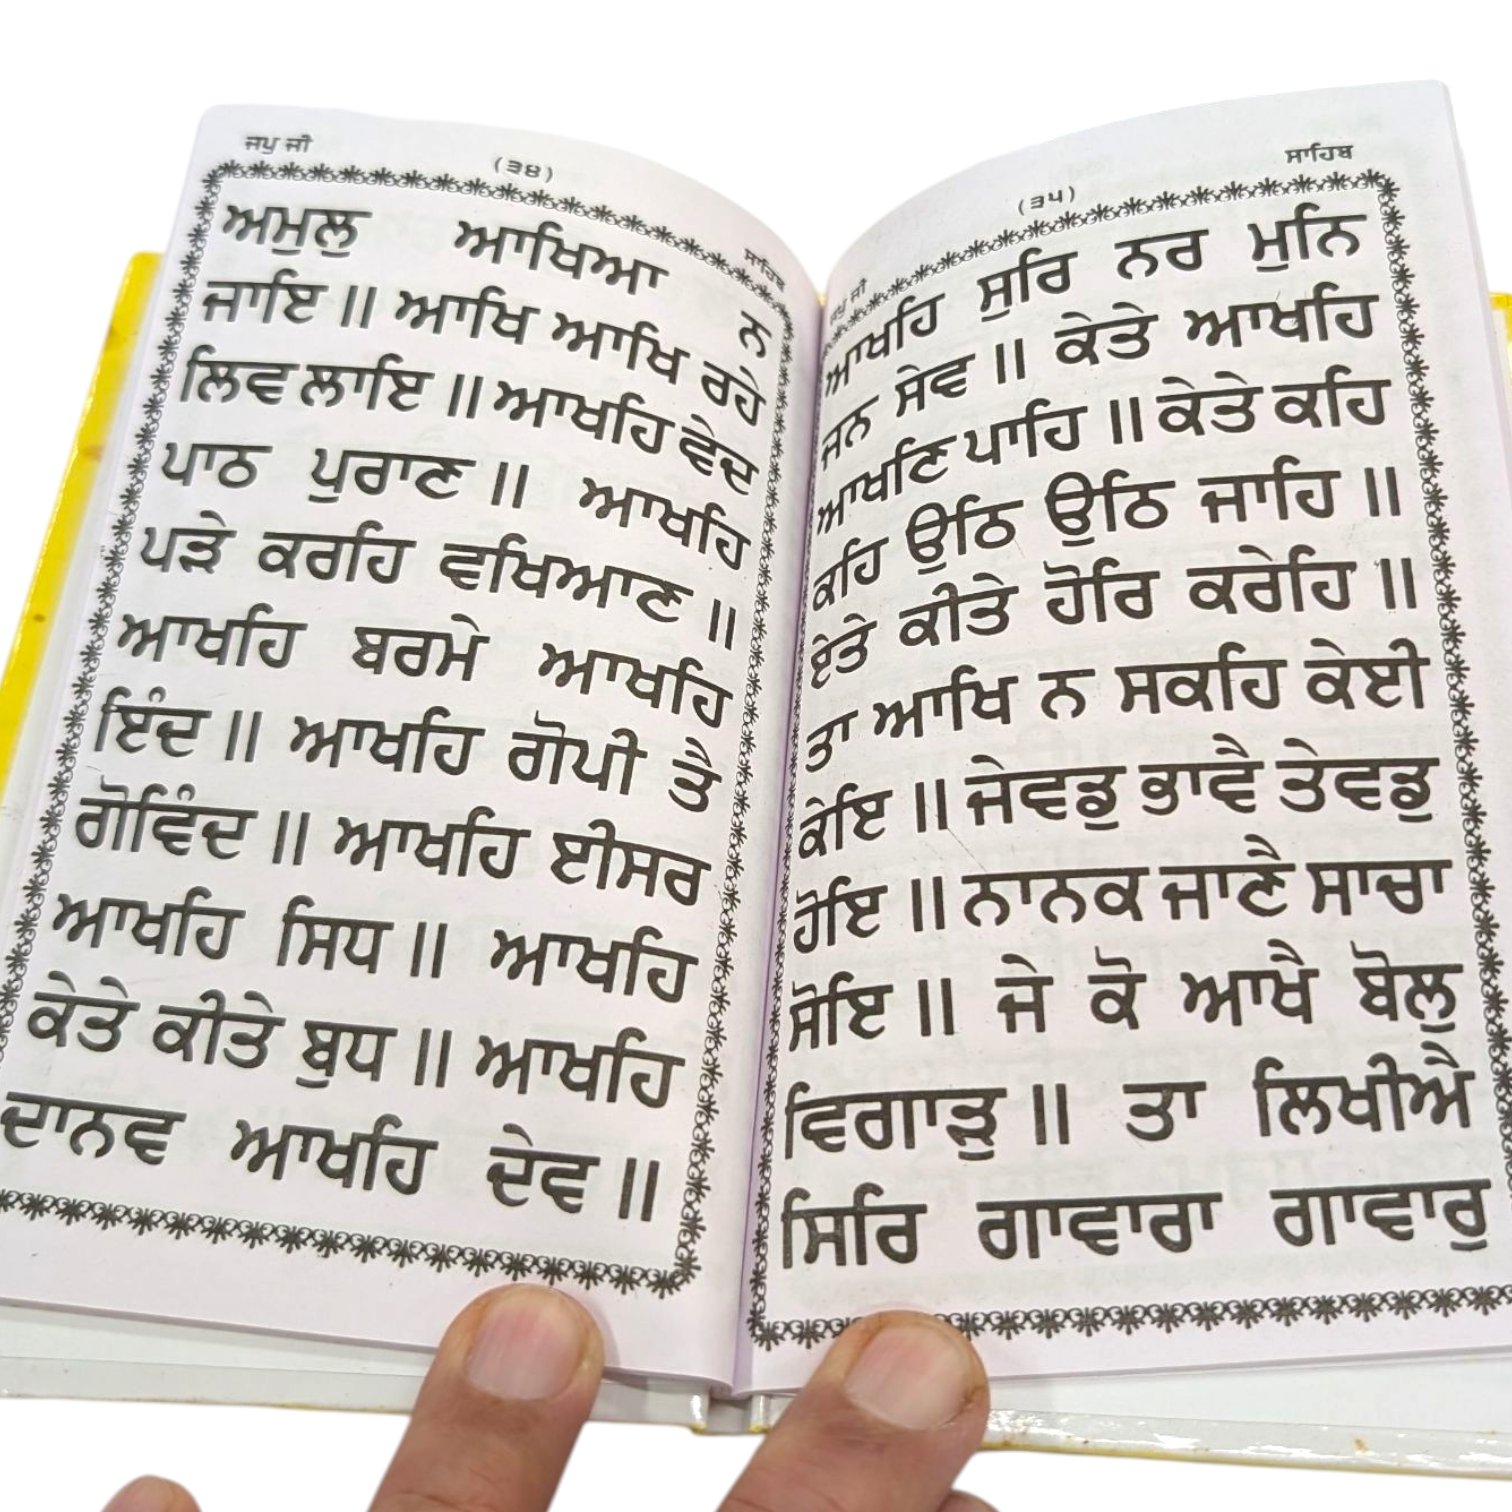 ਜਪੁ ਜੀ
(੩੪)
ਸਾਹਿਬ
ਅਮੁਲੁ ਆਖਿਆ ਨ
ਜਾਇ ॥ ਆਖਿ ਆਖਿ ਰਹੇ
ਲਿਵ ਲਾਇ ॥ ਆਖਹਿ ਵੇਦ
ਪਾਠ ਪੁਰਾਣ ॥ ਆਖਹਿ
ਪੜੇ ਕਰਹਿ ਵਖਿਆਣ ॥
ਆਖਹਿ ਬਰਮੇ ਆਖਹਿ
ਇੰਦ ॥ ਆਖਹਿ ਗੋਪੀ ਤੈ
ਗੋਵਿੰਦ ॥ ਆਖਹਿ ਈਸਰ
ਆਖਹਿ ਸਿਧ ॥ ਆਖਹਿ
ਕੇਤੇ ਕੀਤੇ ਬੁਧ ॥ ਆਖਹਿ
ਦਾਨਵ ਆਖਹਿ ਦੇਵ ॥
ਜਪੁ ਜੀ
(੩੫)
ਸਾਹਿਬ
ਆਖਹਿ ਸੁਰਿ ਨਰ ਮੁਨਿ
ਜਨ ਸੇਵ ॥ ਕੇਤੇ ਆਖਹਿ
ਆਖਣਿ ਪਾਹਿ ॥ ਕੇਤੇ ਕਹਿ
ਕਹਿ ਉਠਿ ਉਠਿ ਜਾਹਿ ॥
ਏਤੇ ਕੀਤੇ ਹੋਰਿ ਕਰੇਹਿ ॥
ਤਾ ਆਖਿ ਨ ਸਕਹਿ ਕੇਈ
ਕੇਇ ॥ ਜੇਵਡੁ ਭਾਵੈ ਤੇਵਡੁ
ਹੋਇ ॥ ਨਾਨਕ ਜਾਣੈ ਸਾਚਾ
ਸੋਇ ॥ ਜੇ ਕੋ ਆਖੈ ਬੋਲੁ
ਵਿਗਾੜੁ ॥ ਤਾ ਲਿਖੀਐ
ਸਿਰਿ ਗਾਵਾਰਾ ਗਾਵਾਰੁ